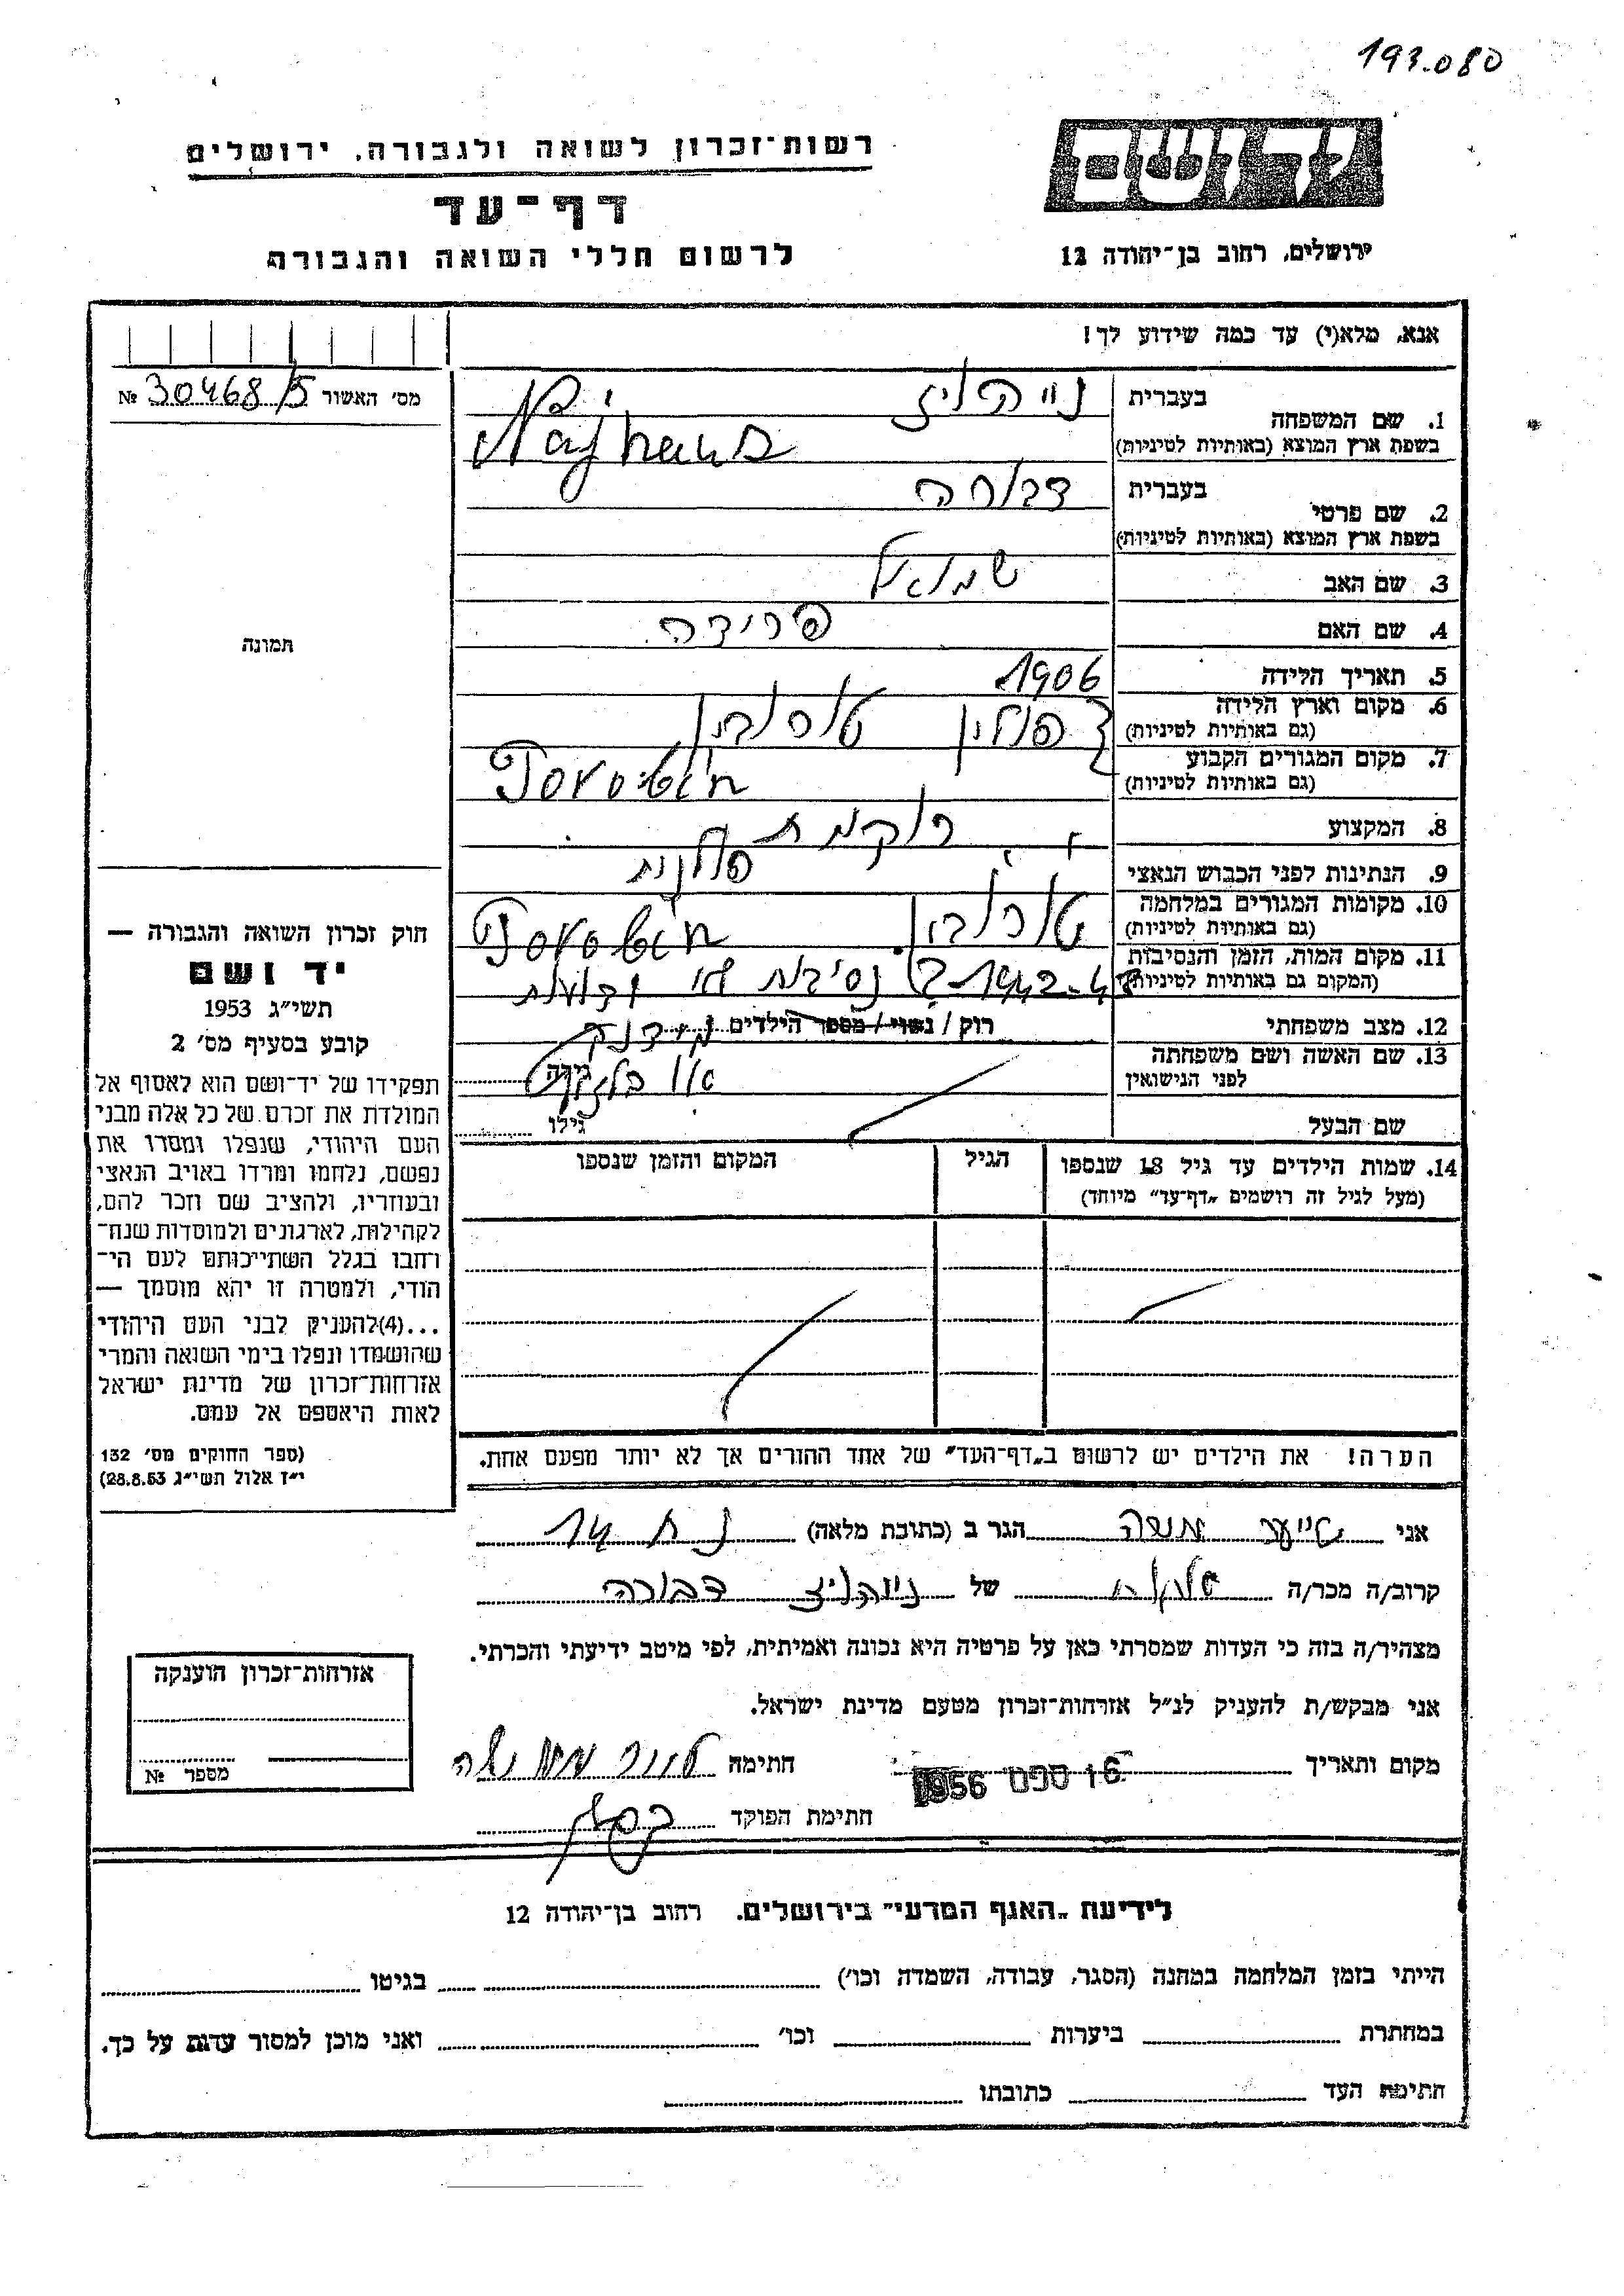 193.080
יד ושם
רשות־זכרון לשואה ולגבורה, ירושלים
דף־עד
לרשום חללי השואה והגבורה
ירושלים, רחוב בן־יהודה 12
אנא, מלא(י) עד כמה שידוע לך!
מס' האשור № 30468/5
1. שם המשפחה
בעברית
בשפת ארץ המוצא (באותיות לטיניות)
Najhaus
2. שם פרטי
בעברית דבורה
בשפת ארץ המוצא (באותיות לטיניות)
3. שם האב שמואל
4. שם האם פרידה
5. תאריך הלידה 1906
6. מקום וארץ הלידה פולין
(גם באותיות לטיניות)
7. מקום המגורים הקבוע
(גם באותיות לטיניות)
8. המקצוע רוקמת
9. הנתינות לפני הכבוש הנאצי פולנית
10. מקומות המגורים במלחמה
(גם באותיות לטיניות)
11. מקום המות, הזמן והנסיבות
(המקום גם באותיות לטיניות) 1942-43
12. מצב משפחתי רוק / נשוי / מספר הילדים
13. שם האשה ושם משפחתה
לפני הנישואין
גילה
שם הבעל גילו
14. שמות הילדים עד גיל 18 שנספו
(מעל לגיל זה רושמים "דף־עד" מיוחד)
הגיל
המקום והזמן שנספו
הערה! את הילדים יש לרשום ב"דף־העד" של אחד ההורים אך לא יותר מפעם אחת.
תמונה
חוק זכרון השואה והגבורה —
יד ושם
תשי"ג 1953
קובע בסעיף מס' 2
תפקידו של יד־ושם הוא לאסוף אל
המולדת את זכרם של כל אלה מבני
העם היהודי, שנפלו ומסרו את
נפשם, נלחמו ומרדו באויב הנאצי
ובעוזריו, ולהציב שם וזכר להם,
לקהילות, לארגונים ולמוסדות שנח־
רחבו בגלל השתייכותם לעם הי־
הודי, ולמטרה זו יהא מוסמך —
...(4)להעניק לבני העם היהודי
שהושמדו ונפלו בימי השואה והמרי
אזרחות־זכרון של מדינת ישראל
לאות היאספם אל עמם.
(ספר החוקים מס' 132
י"ז אלול תשי"ג 28.8.53)
אני הגר ב (כתובת מלאה)
קרוב/ה מכר/ה של דבורה
מצהיר/ה בזה כי העדות שמסרתי כאן על פרטיה היא נכונה ואמיתית, לפי מיטב ידיעתי והכרתי.
אני מבקש/ת להעניק לנ"ל אזרחות־זכרון מטעם מדינת ישראל.
מקום ותאריך 16 ספט 1956 חתימה
חתימת הפוקד
אזרחות־זכרון הוענקה
מספר №
לידיעת "האגף המדעי" בירושלים. רחוב בן־יהודה 12
הייתי בזמן המלחמה במחנה (הסגר, עבודה, השמדה וכו') בגיטו
במחתרת ביערות וכו' ואני מוכן למסור עדות על כך.
חתימת העד כתובתו